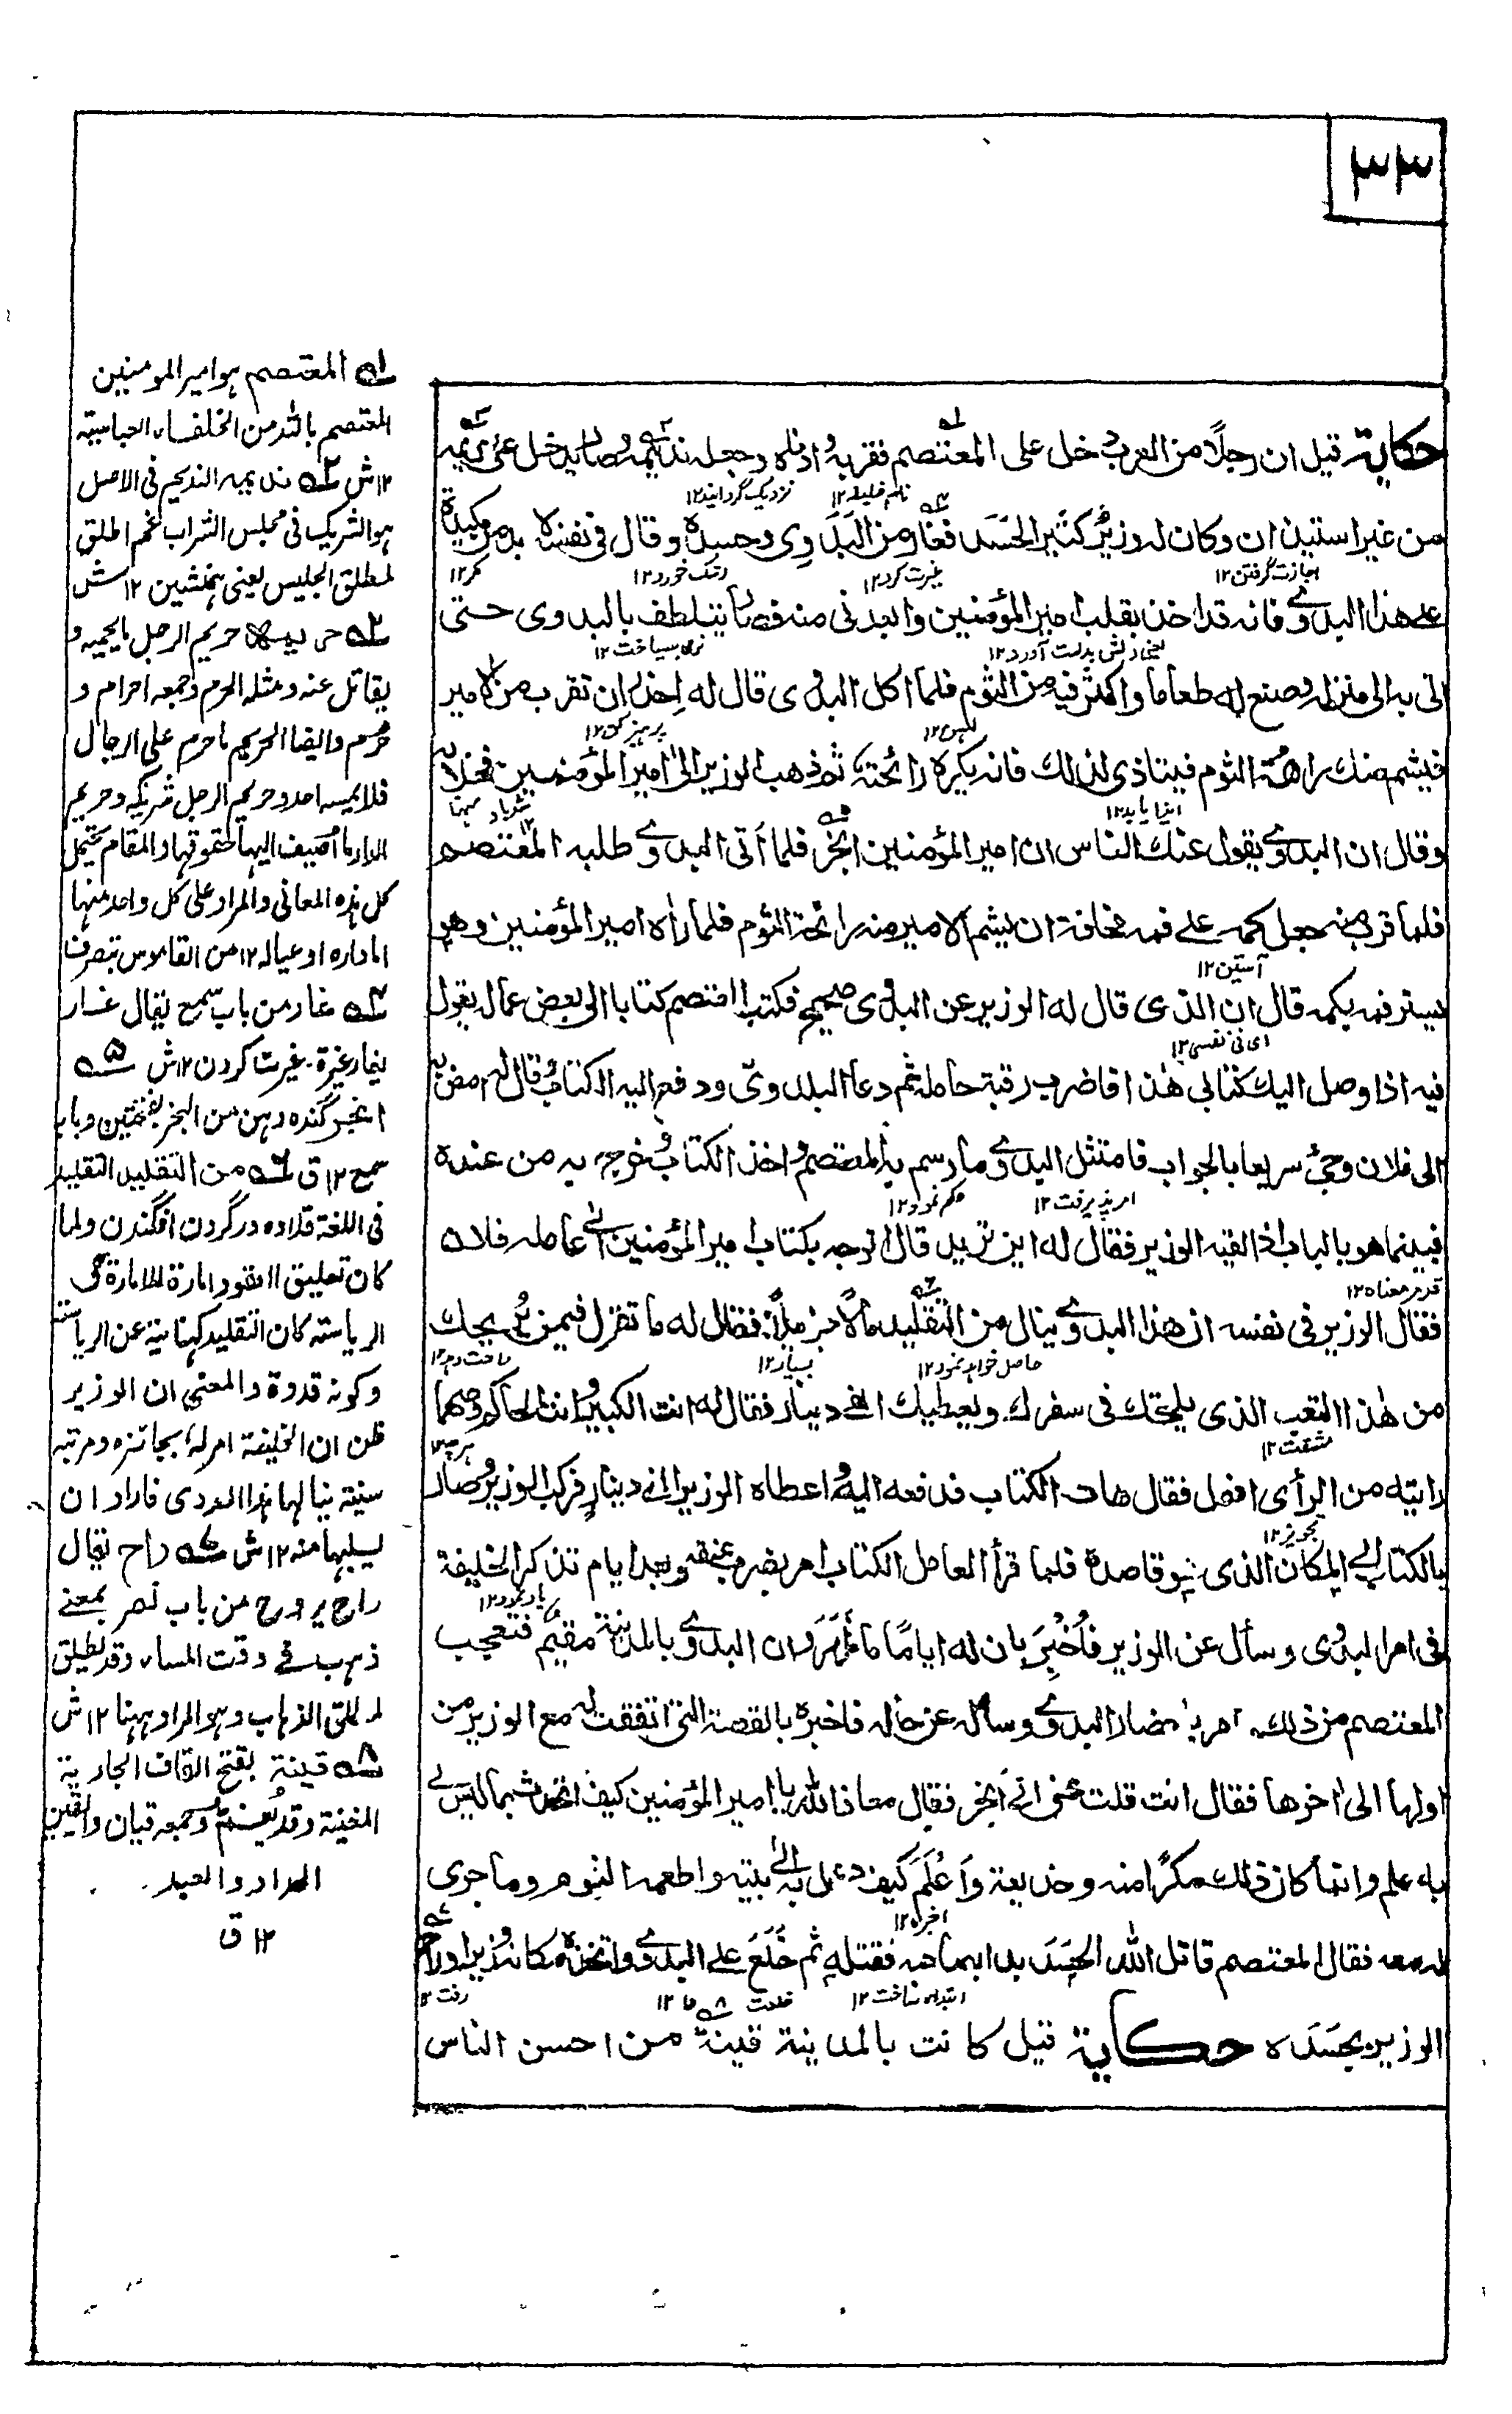 ٣٣
حكاية قيل ان رجلًا من العرب دخل على المعتصم فقربه وادناه وجعله نديمه وصار يدخل على حريمه
نام خليفه ١٢ نزديك گردانيد ١٢
من غير استيذان وكان له وزير كثير الحسد فغار من البدوي وحسده وقال في نفسه لابد من مكيدة
اجازت گرفتن ١٢ غيرت كرد ١٢ رشك خورد ١٢ مكر ١٢
على هذا البدوي فانه قد اخذ بقلب امير المؤمنين وابعدني منه فصار يتلطف بالبدوي حتى
يعنى دلش بدست آورد ١٢ نرمى ميساخت ١٢
اتى به الى منزله وصنع له طعاما واكثر فيه من الثوم فلما اكل البدوى قال له احذر ان تقرب من الامير
لهسن ١٢ پرهيز كن ١٢
فيشم منك رائحة الثوم فيتاذى لذلك فانه يكره رائحته ثم ذهب الوزير الى امير المؤمنين فخلا به
ايذا يابد ١٢
وقال ان البدوي يقول عنك للناس ان امير المؤمنين ابخر فلما اتى البدوي طلبه المعتصم
فلما قرب منه جعل كمه على فمه مخافة ان يشم الامير منه رائحة الثوم فلما راٰه امير المؤمنين وهو
آستين ١٢
يستر فمه بكمه قال ان الذى قال له الوزير عن البدوى صحيح فكتب المعتصم كتابا الى بعض عماله يقول
اى فى نفسى ١٢
فيه اذا وصل اليك كتابي هٰذا فاضرب رقبة حامله ثم دعا البدويّ ودفع اليه الكتاب وقال له امض به
الى فلان وجئ سريعا بالجواب فامتثل البدوي ما رسم به المعتصم واخذ الكتاب وخرج به من عنده
امر پذيرفت ١٢ حكم نمود ١٢
فبينما هو بالباب اذ القيه الوزير فقال له اين تريد قال اتوجه بكتاب امير المؤمنين الى عامله فلان
قد مر معناه ١٢
فقال الوزير فى نفسه ان هذا البدوي ينال من التقليد مالًا جزيلًا فقال له ما تقول فيمن يريحك
حاصل خواهد نمود ١٢ بسيار ١٢ راحت دهد ١٢
من هٰذا التعب الذى يلحقك فى سفرك ويعطيك الفي دينار فقال له انت الكبير وانت الحاكم ومهما
مشقت ١٢ هرچه ١٢
رايته من الرأى افعل فقال هات الكتاب فدفعه اليه واعطاه الوزير الفي دينار فركب الوزير وصار
تجويز ١٢
بالكتاب الى المكان الذى هو قاصده فلما قرأ العامل الكتاب امر بضرب عنقه وبعد ايام تذكر الخليفة
ياد نمود ١٢
فى امر البدوى وسأل عن الوزير فاُخْبِرَ بان له اياما ما ظهر وان البدوي بالمدينة مقيم فتعجب
المعتصم من ذلك امر باحضار البدوي وسأله عن حاله فاخبره بالقصة التى اتفقت له مع الوزير من
اولها الى اٰخرها فقال انت قلت عنى انى ابخر فقال معاذ الله يا امير المؤمنين كيف اتحدث بما ليس لي
به علم وانما كان ذلك مكرًا منه وخديعة وَاَعْلَمَ كيف دخل به الى بيته واطعمه الثوم وما جرى
اخبراه ١٢
له معه فقال المعتصم قاتل الله الحسد بدا بصاحبه فقتله ثم خَلَعَ على البدوي واتخذه مكانه وزيرا وراح
ابتداء ساخت ١٢ خلعت داد ١٢ رفت ١٢
الوزير بحسده حكاية قيل كانت بالمدينة قينة من احسن الناس
١ه المعتصم هو امير المومنين
المعتصم بالله من الخلفاء العباسية
١٢ ش ٢ه نديمه النديم فى الاصل
هو الشريك فى مجلس الشراب ثم اطلق
لمطلق الجليس يعنى همنشين ١٢ ش
٣ه حريمه حريم الرجل ما يحميه و
يقاتل عنه ومثله الحرم وجمعه احرام و
حرم وايضا الحريم ما حرم على الرجال
فلا يمسه احد وحريم الرجل شريكه وحريم
الدار ما اضيف اليها لحقوقها والمقام يحتمل
كل هذه المعانى والمراد على كل واحد منها
اما داره او عياله ١٢ من القاموس بتصرف
٤ه غار من باب سمع يقال غار
يغار غيرة غيرت كردن ١٢ ش ٥ه
ابخر گنده دهن من البخر بفتحتين وباب
سمع ١٢ ق ٦ه من التقليد التقليد
فى اللغة قلاده در گردن افگندن ولما
كان تعليق العقود امارة للامارة و
الرياسة كان التقليد كناية عن الرياسة
وكونه قدوة والمعنى ان الوزير
ظن ان الخليفة امر له بجائزه ومرتبه
سنية ينالها هذا البدوى فاراد ان
يسلبها منه ١٢ ش ٧ه راح يقال
راح يروح من باب نصر بمعنى
ذهب فى وقت المساء وقد يطلق
لمطلق الذهاب وهو المراد ههنا ١٢ ش
٨ه قينة بفتح القاف الجارية
المغنية وقد يعم وجمعه قيان والقين
الحداد والعبد
١٢ ق